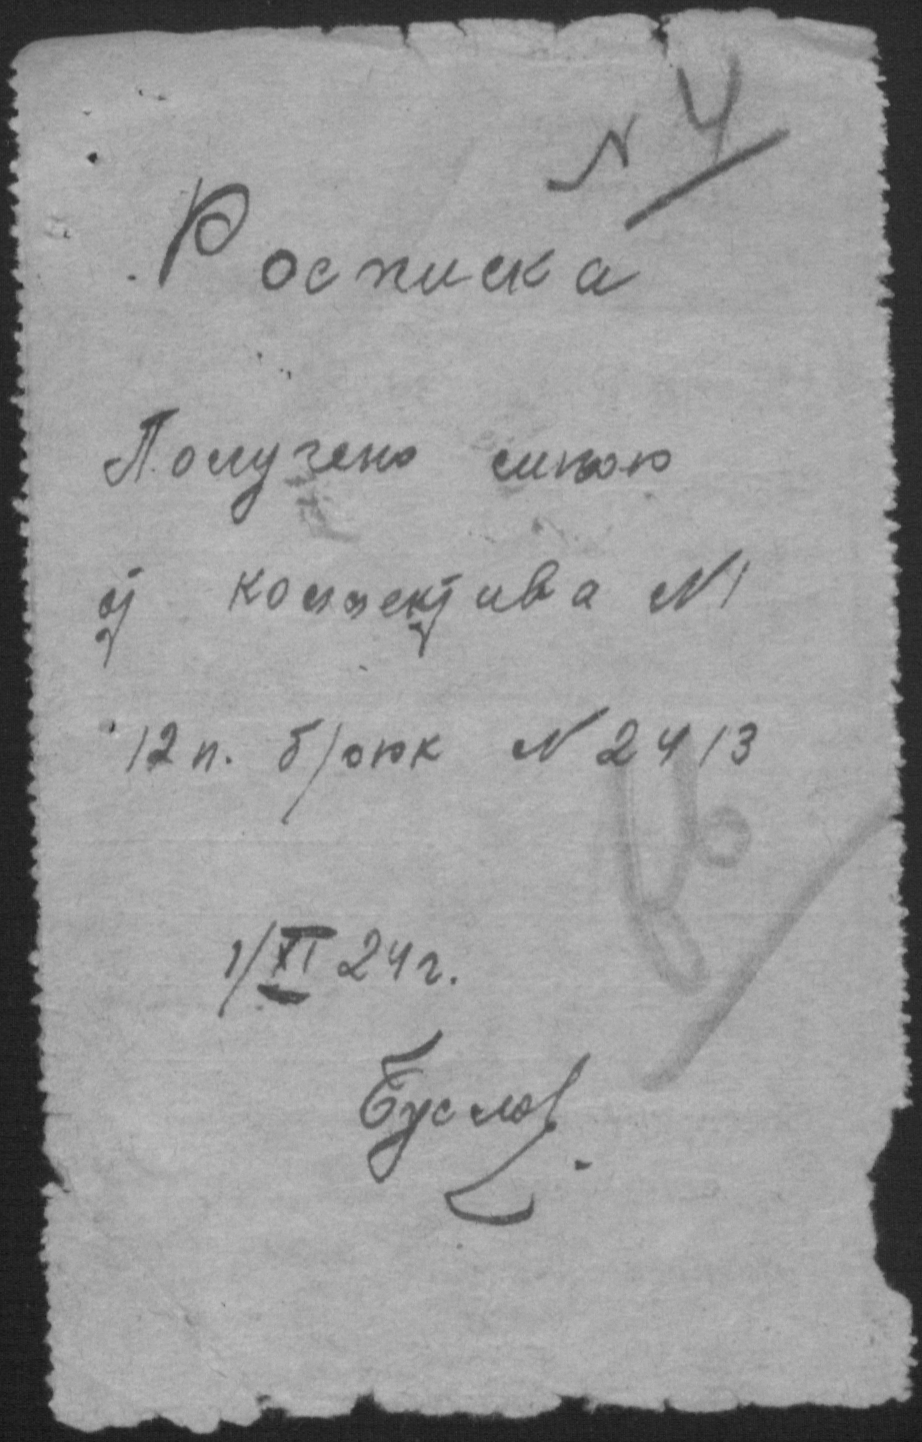 N 4
Росписка
Получено мною
от коллектива N 1
12 п. брюк N 2413
1/XI 24 г.
Буслов